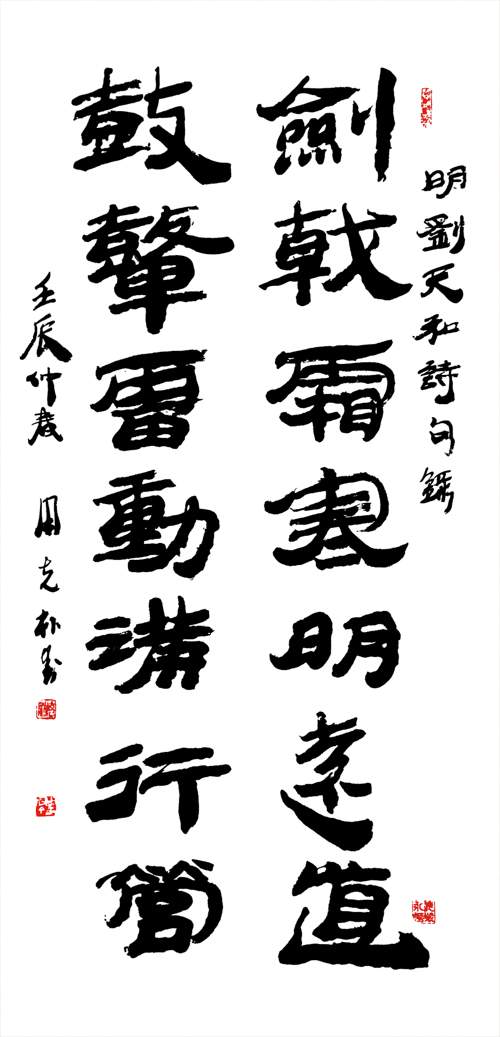 明劉天和詩句録
劍戟霜寒明遠道
鼓鼙雷動滿行營
壬辰仲春 周克朴書